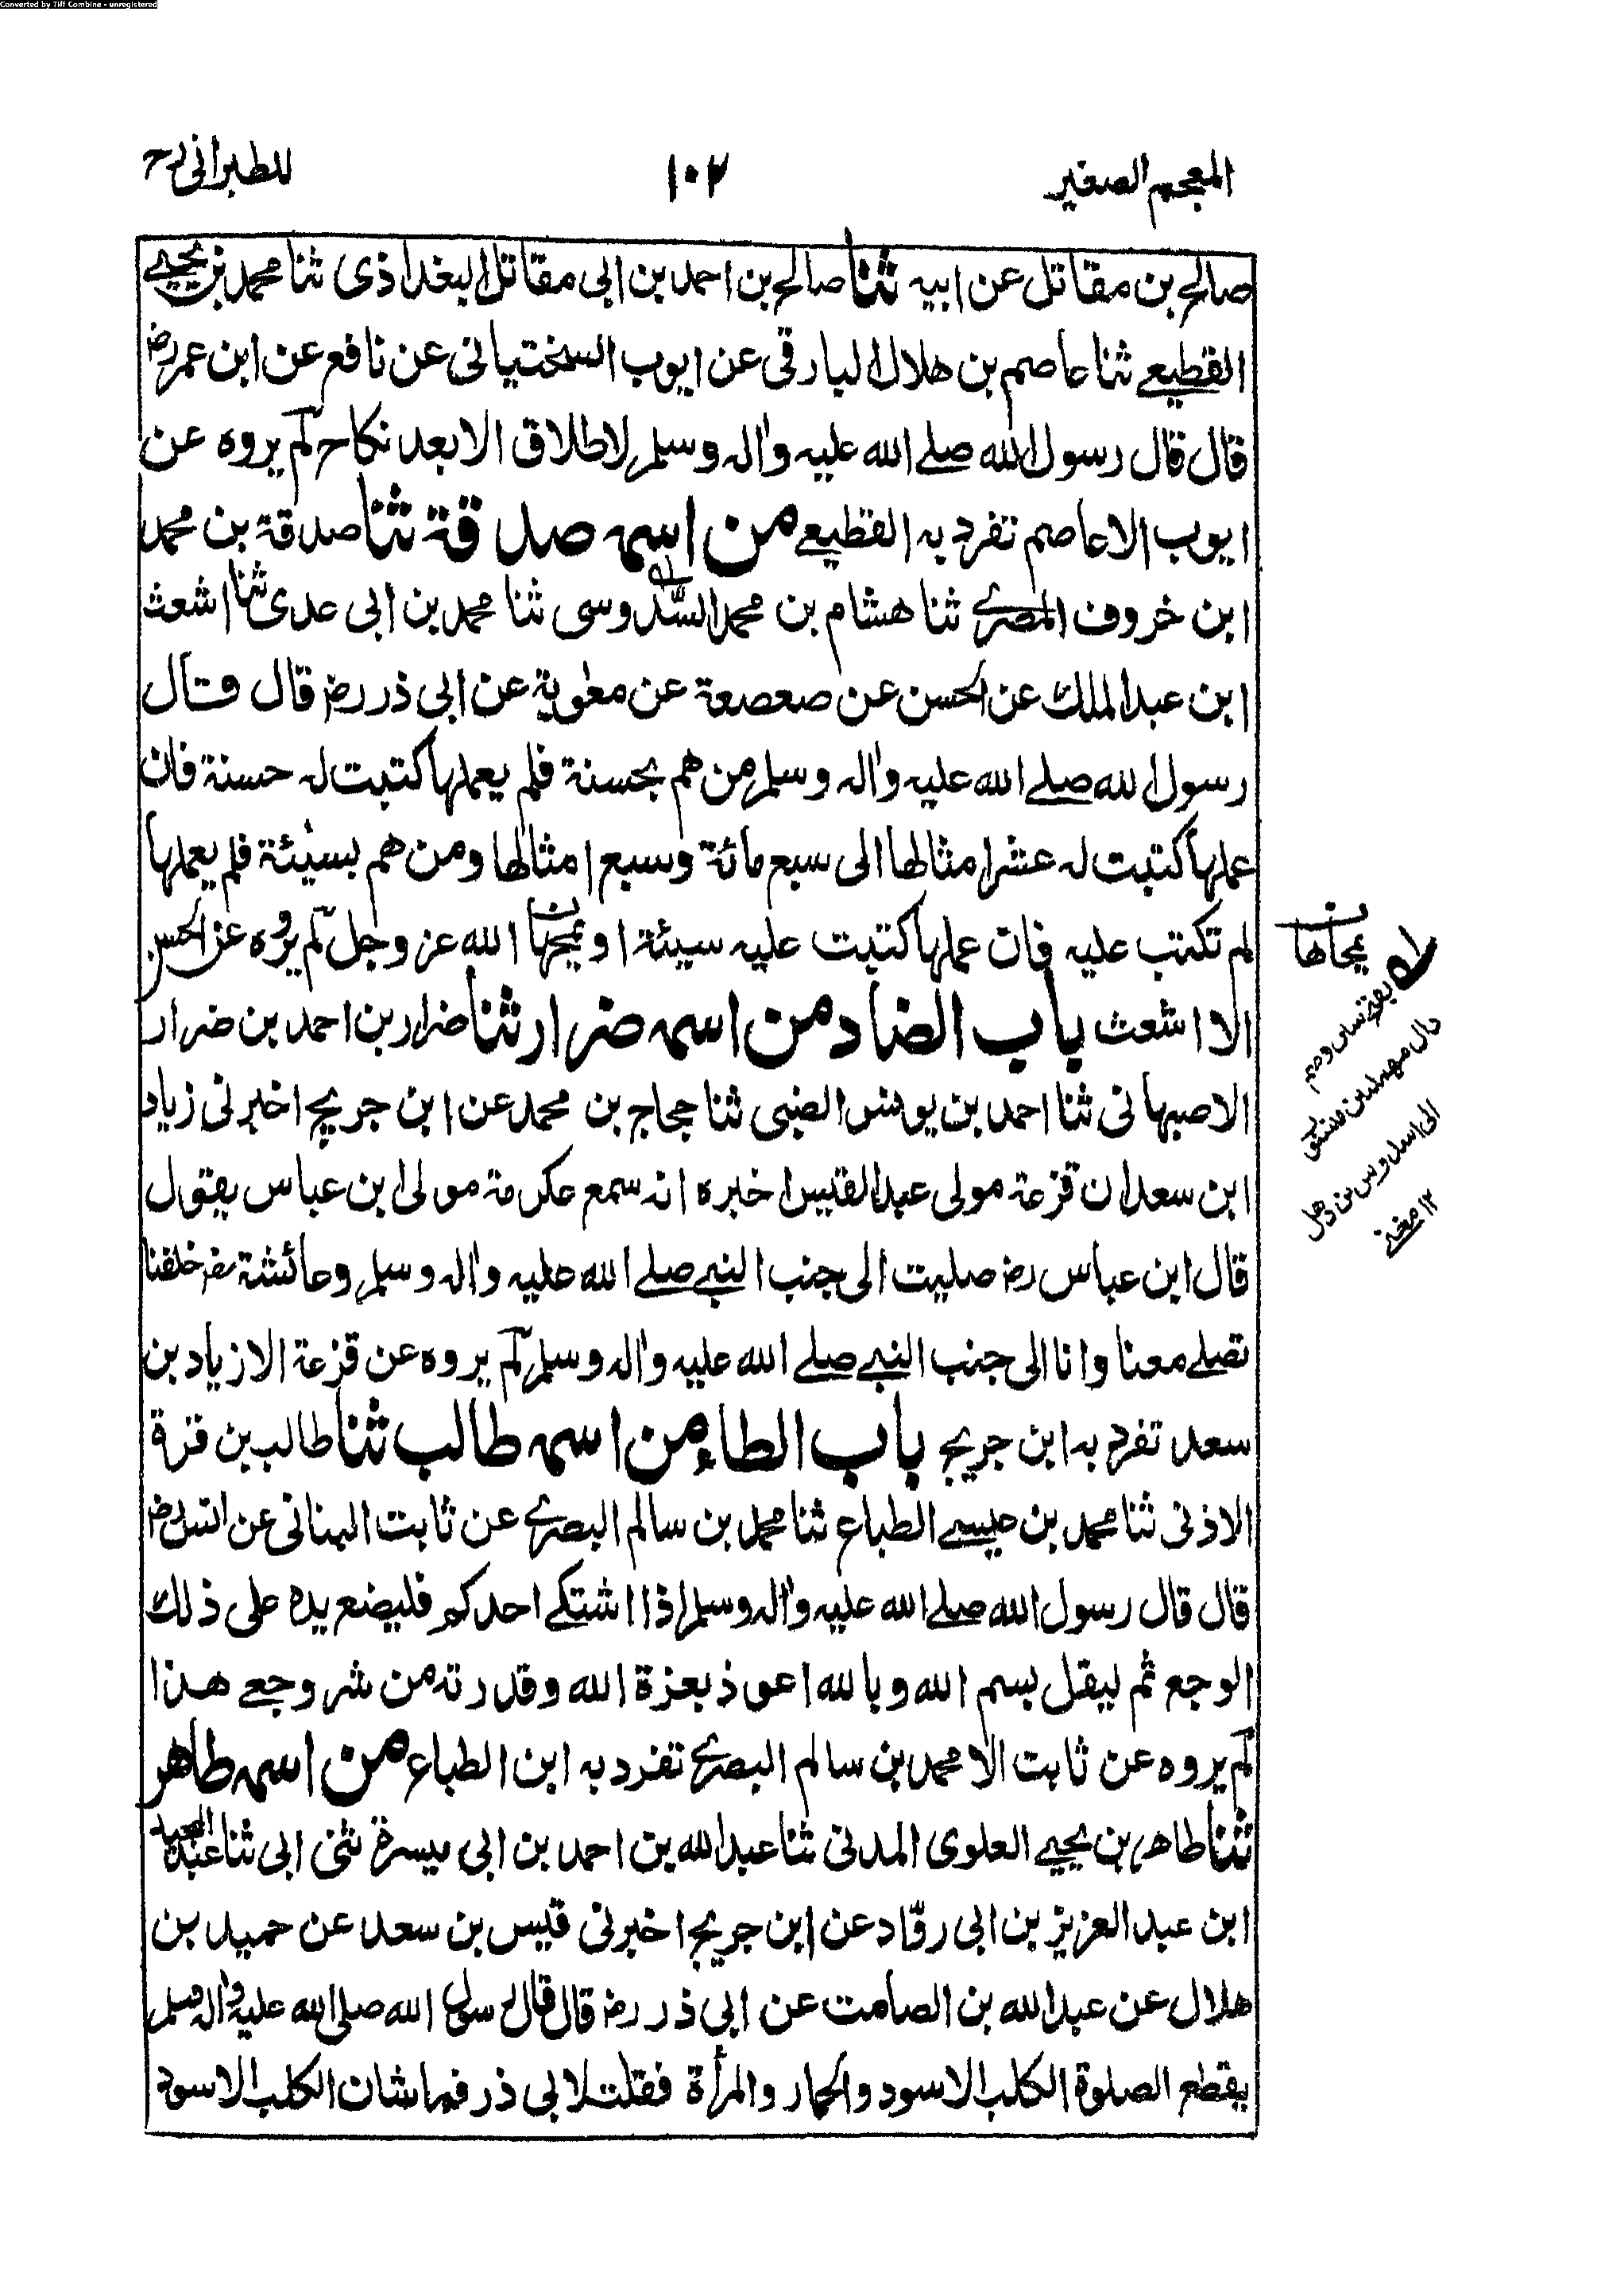 Converted by Tiff Combine - unregistered
المعجم الصغير ١٠٢ للطبراني رح
صالح بن مقاتل عن ابيه ثنا صالح بن احمد بن ابى مقاتل البغداذى ثنا محمد بن يحيے
القطيعے ثنا عاصم بن هلال البارقى عن ايوب السختيانى عن نافع عن ابن عمر رض
قال قال رسول الله صلے الله عليه واٰله وسلم لا طلاق الا بعد نكاح لم يروه عن
ايوب الا عاصم تفرد به القطيعے من اسمه صدقة ثنا صدقة بن محمد
ابن خروف المصرے ثنا هشام بن محمد السّدوسى ثنا محمد بن ابى عدى ثنا اشعث
ابن عبد الملك عن الحسن عن صعصعة عن معٰوية عن ابى ذر رض قال قال
رسول الله صلے الله عليه واٰله وسلم من هم بحسنة فلم يعملها كتبت له حسنة فان
عملها كتبت له عشر امثالها الى سبع مائة وسبع امثالها ومن هم بسيئة فلم يعملها
لم تكتب عليه فان عملها كتبت عليه سيئة او يمحها الله عز وجل لم يروه عن الحسن
الا اشعث باب الضاد من اسمه ضرار ثنا ضرار بن احمد بن ضرار
الاصبهانى ثنا احمد بن يونس الضبى ثنا حجاج بن محمد عن ابن جريج اخبرنى زياد
ابن سعد ان قزعة مولى عبد القيس اخبره انه سمع عكرمة مولى ابن عباس يقول
قال ابن عباس رض صليت الى جنب النبے صلے الله عليه واٰله وسلم وعائشة رض خلفنا
تصلے معنا وانا الى جنب النبے صلے الله عليه واٰله وسلم لم يروه عن قزعة الا زياد بن
سعد تفرد به ابن جريج باب الطاء من اسمه طالب ثنا طالب بن قرة
الاذنى ثنا محمد بن عيسے الطباع ثنا محمد بن سالم البصرے عن ثابت البنانى عن انس رض
قال قال رسول الله صلے الله عليه واٰله وسلم اذا اشتكے احدكم فليضع يده على ذلك
الوجع ثم ليقل بسم الله وبالله اعوذ بعزة الله وقدرته من شر وجعے هذا
لم يروه عن ثابت الا محمد بن سالم البصرے تفرد به ابن الطباع من اسمه طاهر
ثنا طاهر بن يحيے العلوى المدنى ثنا عبد الله بن احمد بن ابى ميسرة ثنى ابى ثنا عبد المجيد
ابن عبد العزيز بن ابى روّاد عن ابن جريج اخبرنى قيس بن سعد عن حميد بن
هلال عن عبد الله بن الصامت عن ابى ذر رض قال قال رسول الله صلى الله عليه واٰله وسلم
يقطع الصلوة الكلب الاسود والحمار والمرأة فقلت لابى ذر فما شان الكلب الاسود
يمحاها
دال مهملتين
الى سدوس بن ذهل
١٢ مغنے